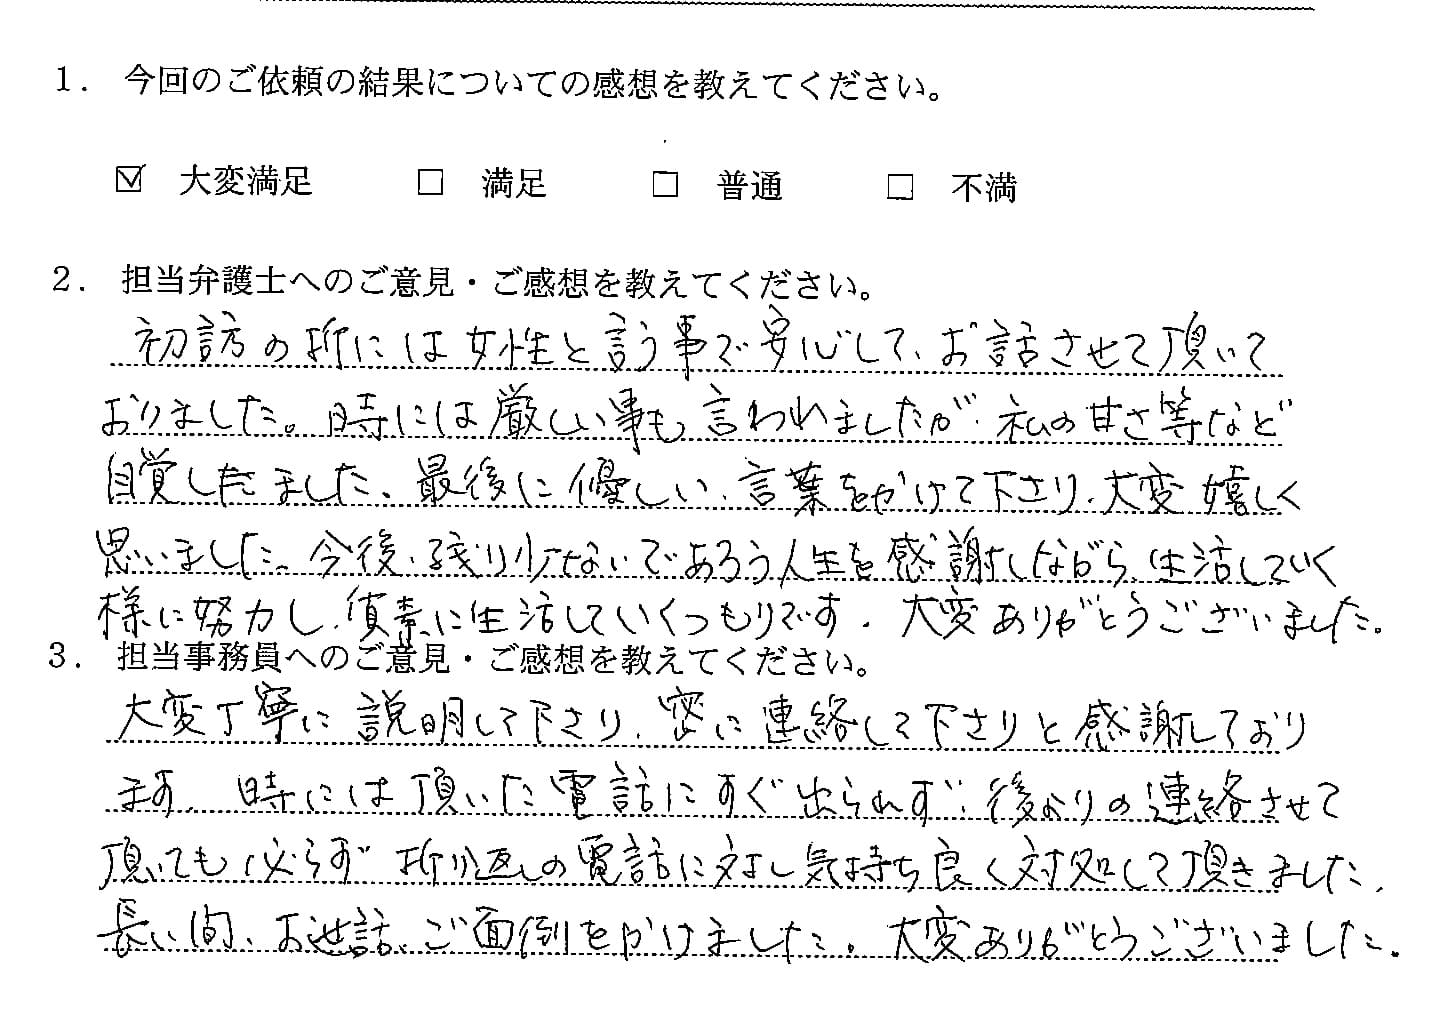 1. 今回のご依頼の結果についての感想を教えてください。
☑ 大変満足 □ 満足 □ 普通 □ 不満
2. 担当弁護士へのご意見・ご感想を教えてください。
初訪の折には女性と言う事で安心して、お話させて頂いて
おりました。時には厳しい事も言われましたが、私の甘さ等など
自覚しました。最後に優しい、言葉をかけて下さり、大変嬉しく
思いました。今後、残り少ないであろう人生を感謝しながら、生活していく
様に努力し、質素に生活していくつもりです。大変ありがとうございました。
3. 担当事務員へのご意見・ご感想を教えてください。
大変丁寧に説明して下さり、密に連絡して下さりと感謝しており
ます。時には頂いた電話にすぐ出られず、後よりの連絡させて
頂いても必らず折り返しの電話に対し気持ち良く対処して頂きました。
長い間、お世話、ご面倒をかけました。大変ありがとうございました。